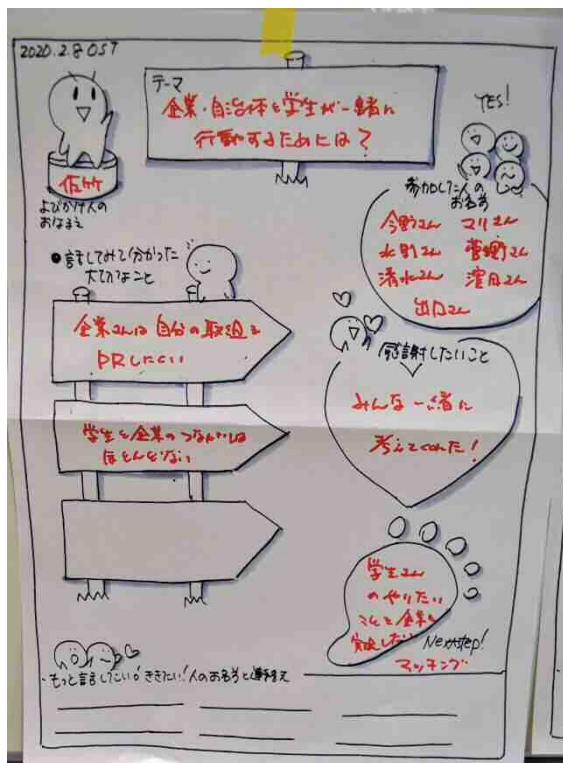 2020.2.8 OST
テーマ
企業・自治体と学生が一緒に
行動するためには？
YES!
佐竹
よびかけ人の
おなまえ
参加した人の
お名前
今野さん マリさん
水野さん 菅野さん
清水さん 窪田さん
出口さん
●話してみて分かった
大切なこと
企業さんは自分の取組を
PRしにくい
学生と企業のつながりは
ほとんどない
感謝したいこと
みんな一緒に
考えてくれた！
学生さん
のやりたい
ことと企業の
したい
Next step!
マッチング
・もっと話したい！ききたい！人のお名前と連絡先